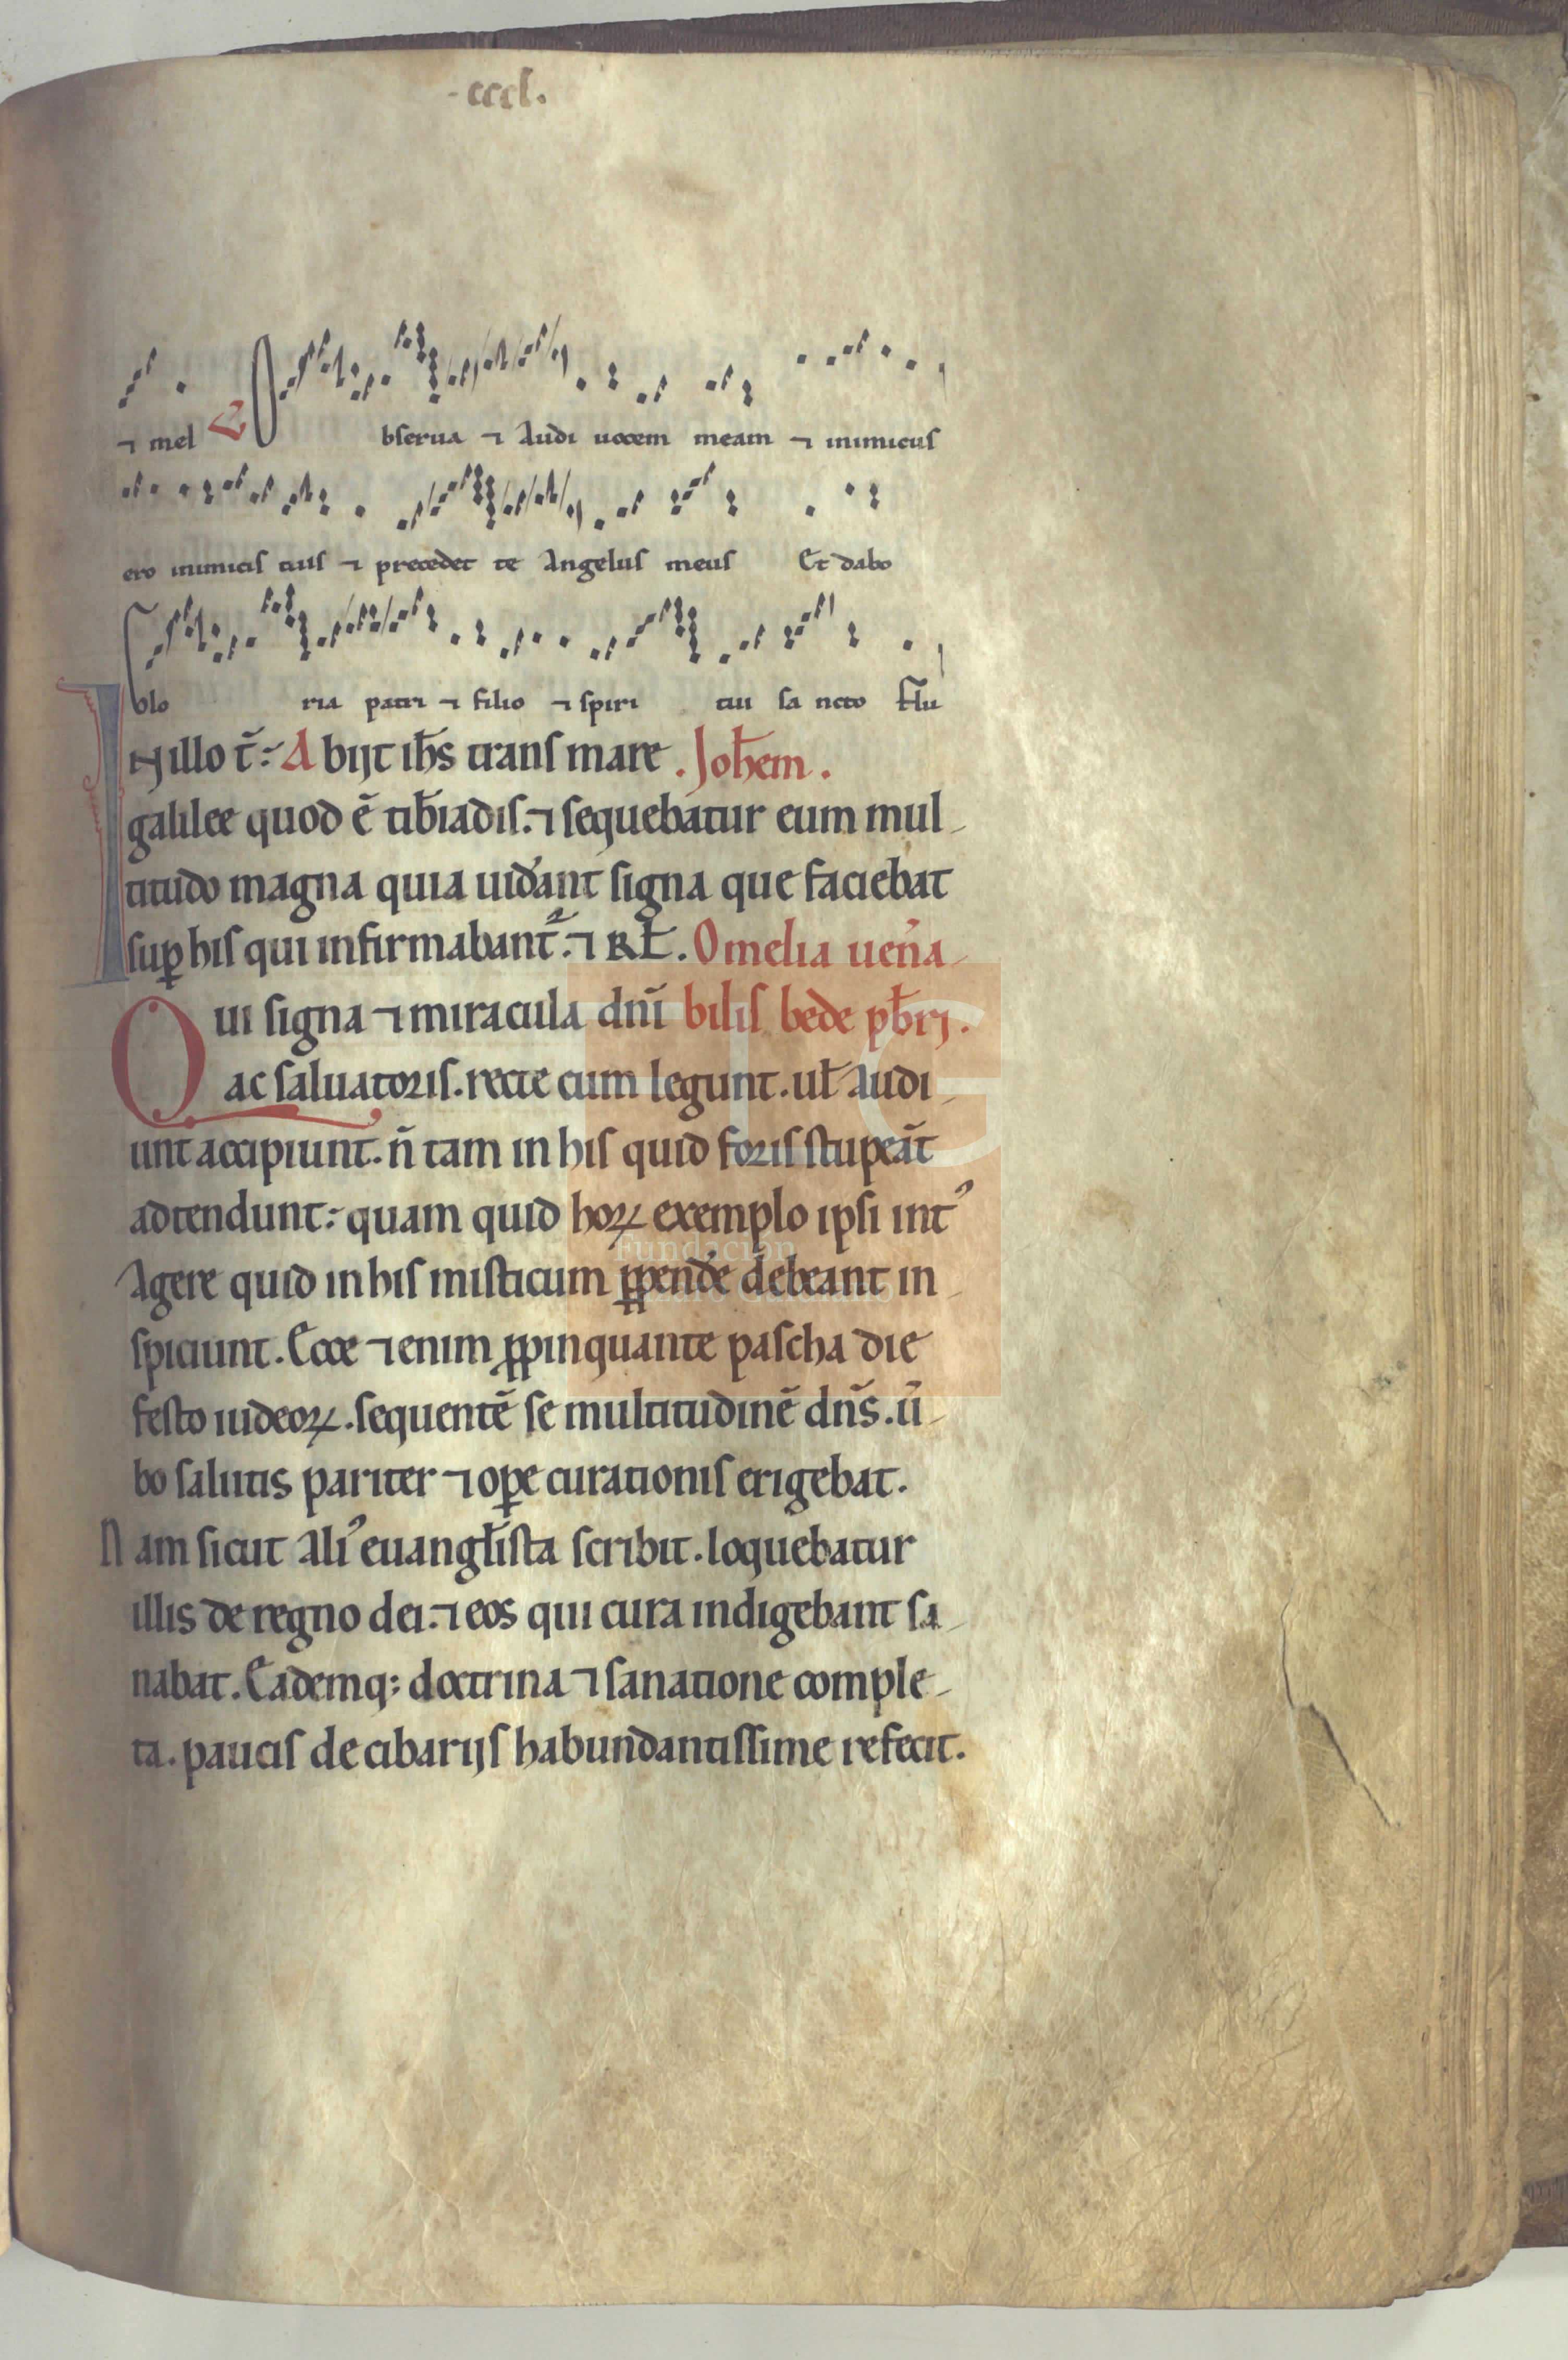 ·cccl·
⁊ mel V Obserua ⁊ audi uocem meam ⁊ inimicus
ero inimicis tuis ⁊ precedet te Angelus meus Et dabo
Glo ria patri ⁊ filio ⁊ spiri tui sa ncto
IN illo t̄: Abijt ih̄s trans mare. Joh̄em.
galilee quod ē tib̄iadis. ⁊ sequebatur eum mul-
titudo magna quia uid̾ant signa que faciebat
sup̱ his qui infirmabant᷑. ⁊ RŁ. Omelia uen̄a-
Qui signa ⁊ miracula dn̄i bilis bede pb̄ri.
ac saluatoris. recte cum legunt. ul̄ audi-
unt accipiunt. n̄ tam in his quid foris stupeāt
adtendunt: quam quid hoꝝ exemplo ipsi int᾿
agere quid in his misticum ꝑpend̾e debeant in-
spiciunt. Ecce ⁊enim ꝓpinquante pascha die
festo iudeoꝝ. sequentē se multitudinē dn̄s. ū-
bo salutis pariter ⁊ oꝑe curationis erigebat.
Nam sicut ali᾿ euangl̄ista scribit. loquebatur
illis de regno dei. ⁊ eos qui cura indigebant sa-
nabat. Eademq; doctrina ⁊ sanatione comple-
ta. paucis de cibarijs habundantissime refecit.
Fundación